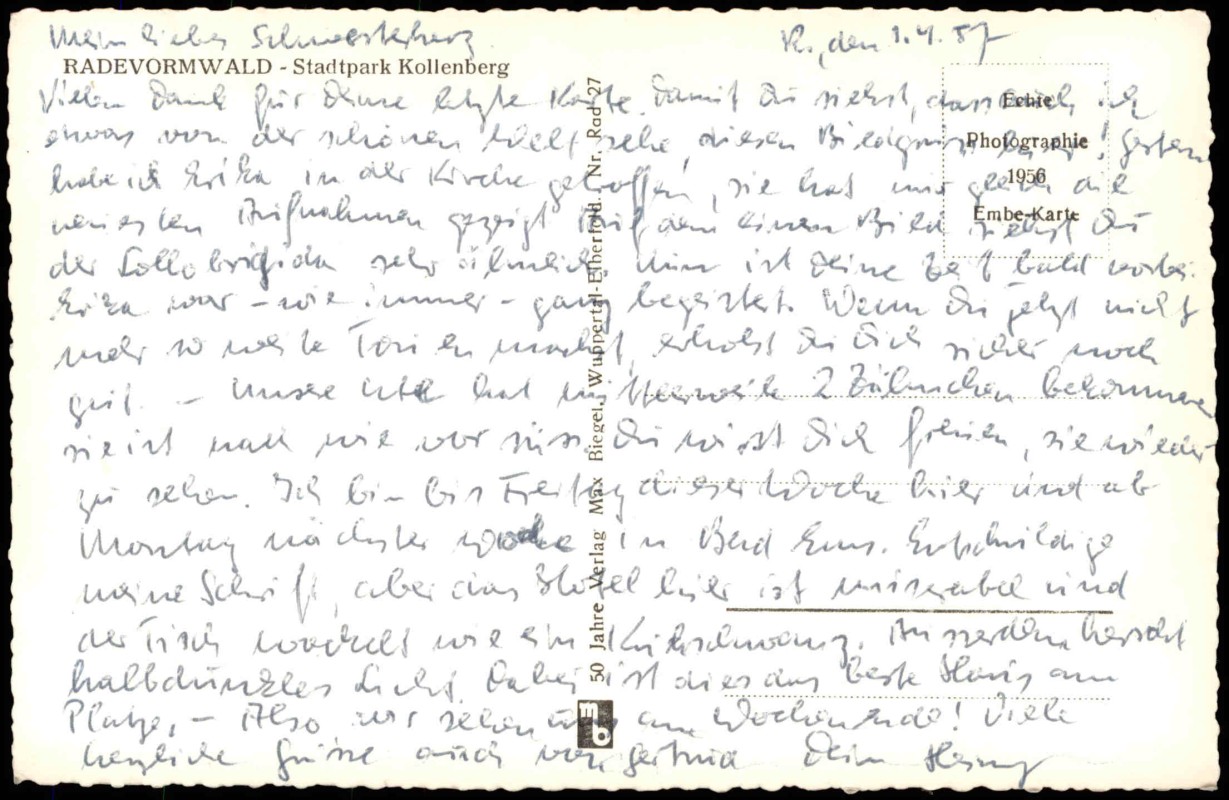 Mein liebes Schwesterherz R., den 1.4.57
RADEVORMWALD - Stadtpark Kollenberg
Vielen Dank für Deine letzte Karte. Damit Du siehst, dass auch ich
etwas von der schönen Welt sehe, diesen Bildgruss! Gestern
habe ich Erika in der Kirche getroffen, sie hat mir gleich die
neuesten Aufnahmen gezeigt. Auf dem einen Bild siehst Du
der Lollobrigida sehr ähnlich. Nun ist Deine Zeit bald vorbei.
Erika war - wie immer - ganz begeistert. Wenn Du jetzt nicht
mehr so weite Touren machst, erholst Du Dich sicher noch
gut. - Unsere Ute hat mittlerweile 2 Zähnchen bekommen
sie ist nach wie vor süss. Du wirst Dich freuen, sie wieder
zu sehen. Ich bin bis Freitag dieser Woche hier und ab
Montag nächster Woche in Bad Ems. Entschuldige
meine Schrift, aber das Hotel hier ist miserabel und
der Tisch wackelt wie ein Kuhschwanz. Ausserdem herrscht
halbdunkles Licht. Dabei ist dies das beste Haus am
Platze. - Also wir sehen uns am Wochenende! Viele
herzliche Grüsse auch von Gertrud Dein Heinz
50 Jahre Verlag Max Biegel, Wuppertal-Elberfeld. Nr. Rad 27
Echte
Photographie
1956
Embe-Karte